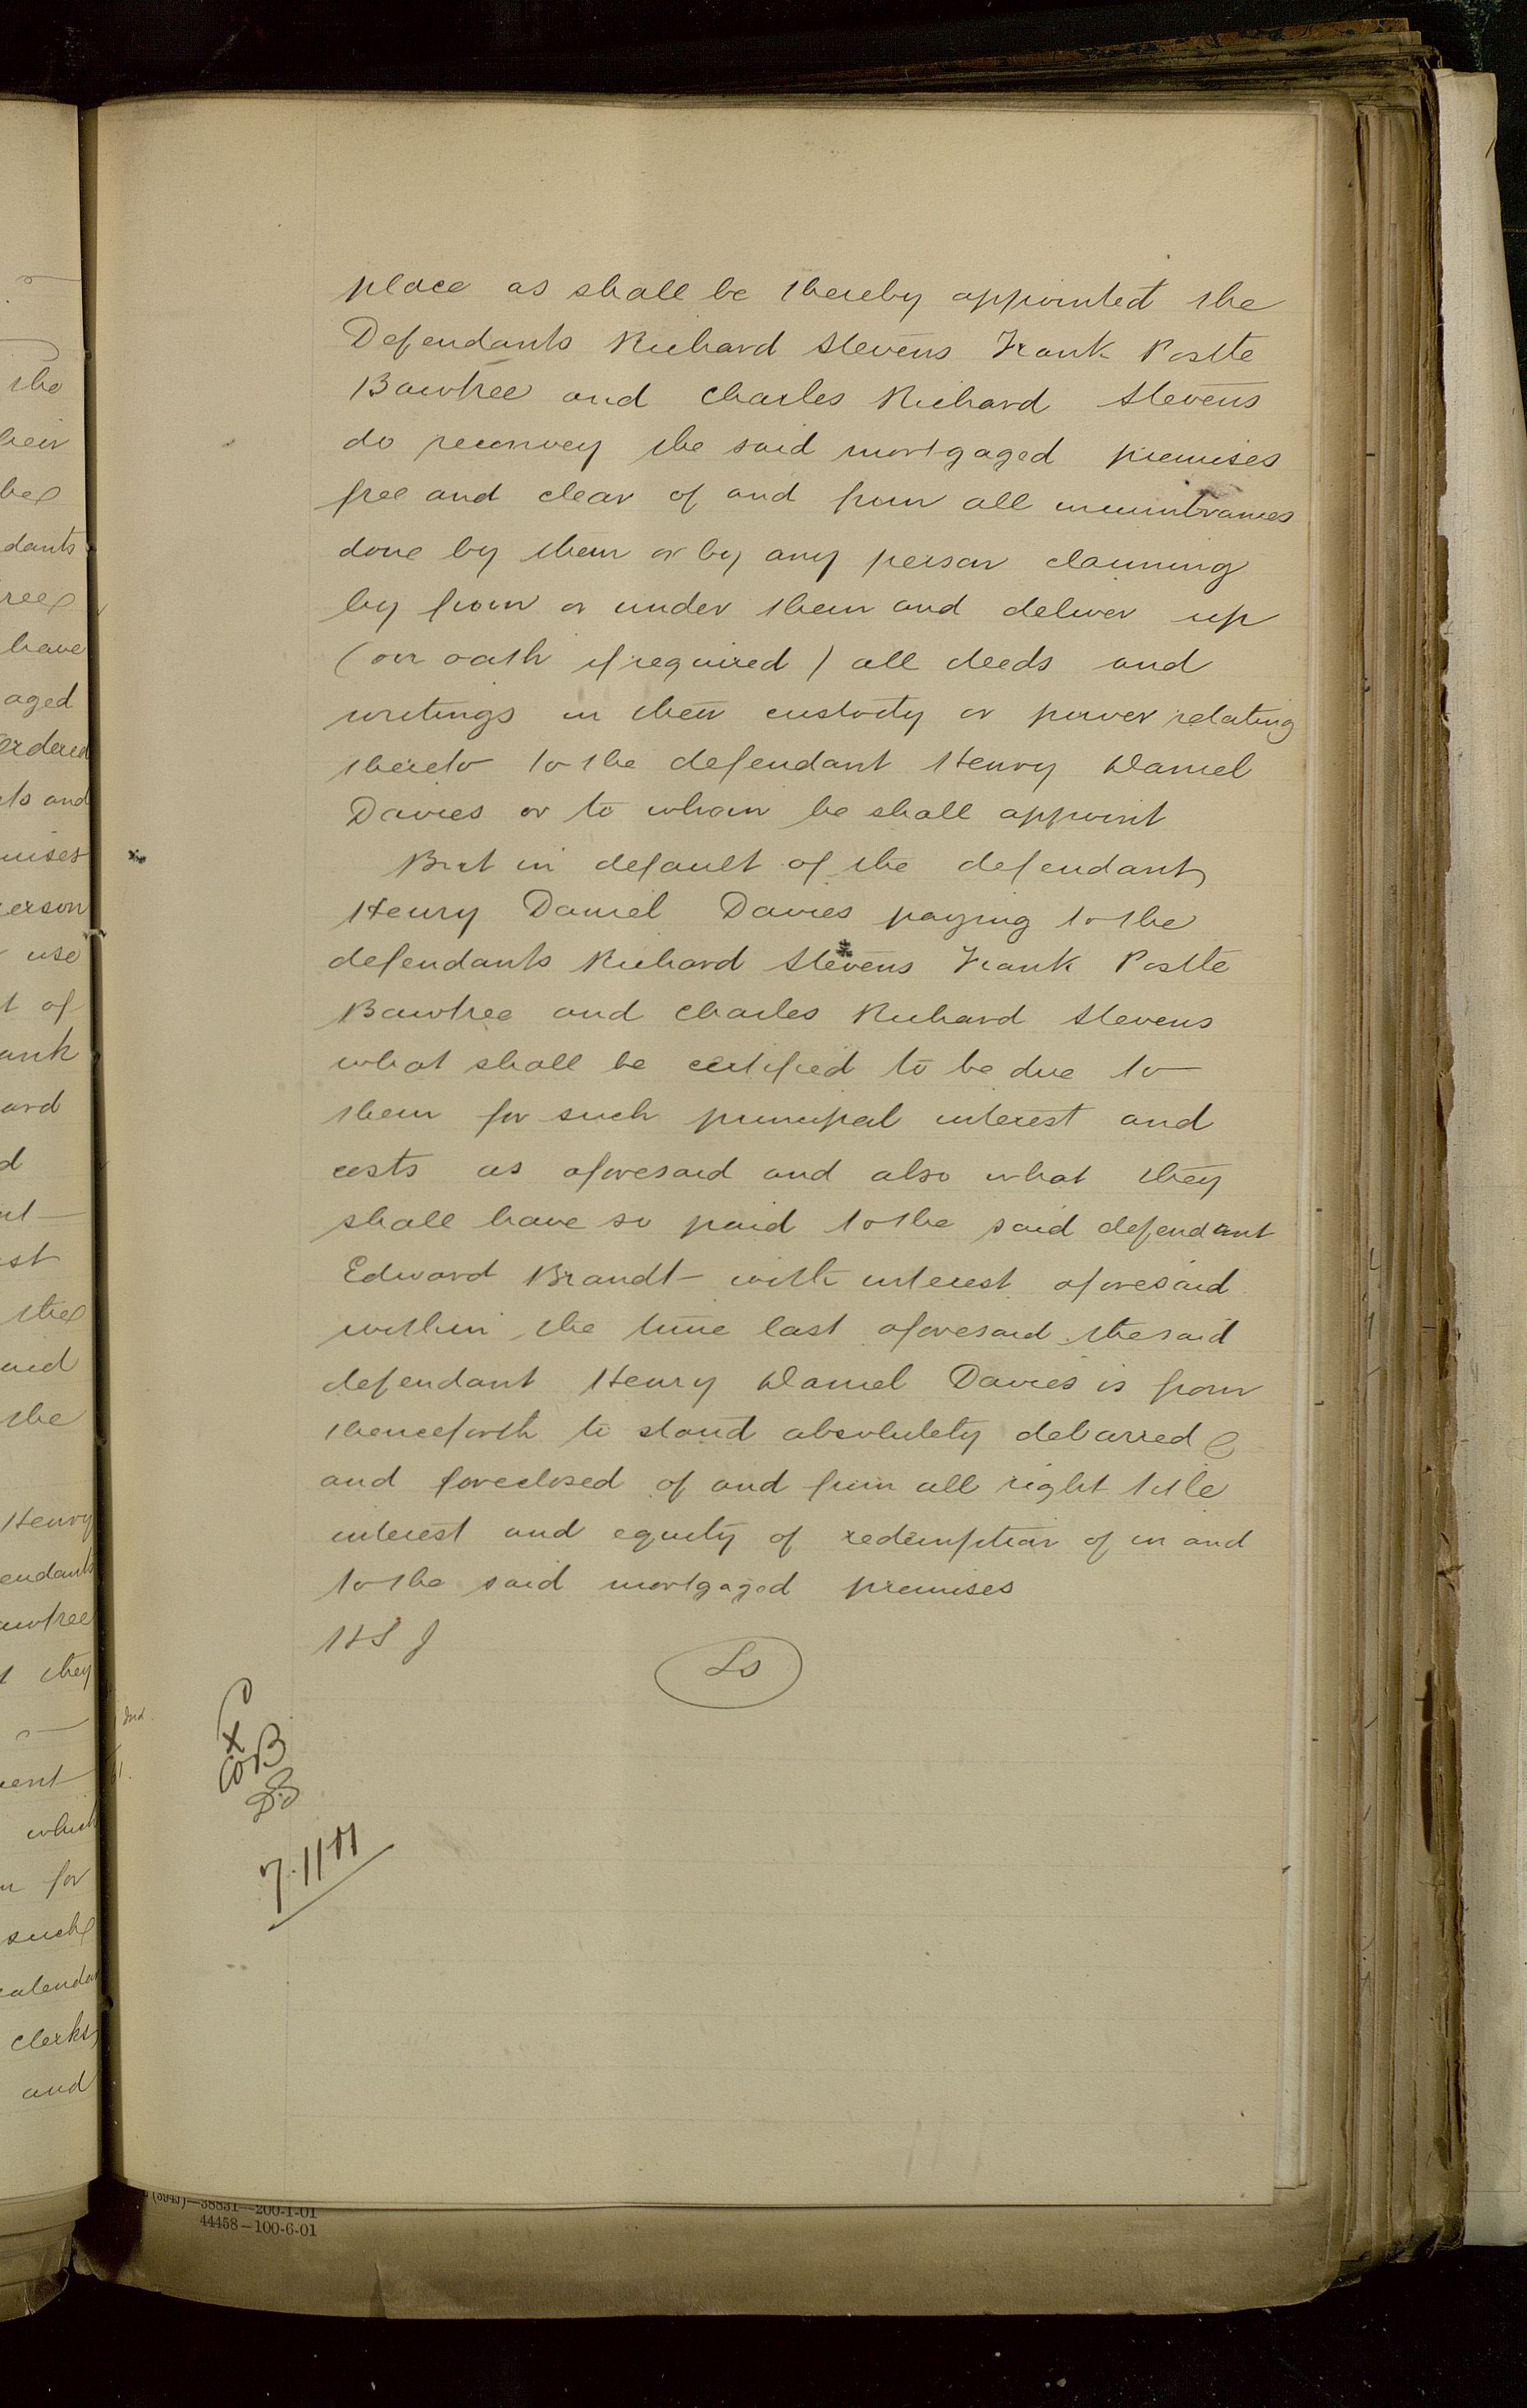 place as shall be thereby appointed the
Defendants Richard Stevens Frank Postte
Bawtree and Charles Richard Stevens
do reconvey the said mortgaged premises
free and clear of and from all incumbrances
done by them or by any person claiming
by from or under them and deliver up
(on oath if required) all deeds and
writings in their custody or power relating
thereto to the defendant Henry Daniel
Davies or to whom he shall appoint
But in default of the defendant
Henry Daniel Davies paying to the
defendants Richard Stevens Frank Postte
Bawtree and Charles Richard Stevens
what shall be certified to be due to
them for such principal interest and
costs as aforesaid and also what they
shall have so paid to the said defendant
Edward Brandt with interest aforesaid
within the time last aforesaid the said
defendant Henry Daniel Davies is from
thenceforth to stand absolutely debarred
and foreclosed of and from all right title
interest and equity of redemption of in and
to the said mortgaged premises
HSJ
LS
the
heir
be
dants
ree
have
aged
ordered
ts and
mises
person
use
t of
ank
ard
d
nt
st
the
aid
the
Henry
endants
awtree
they
ent
which
for
such
calendar
Clerks
and
38831—200-1-01
44458—100-6-01